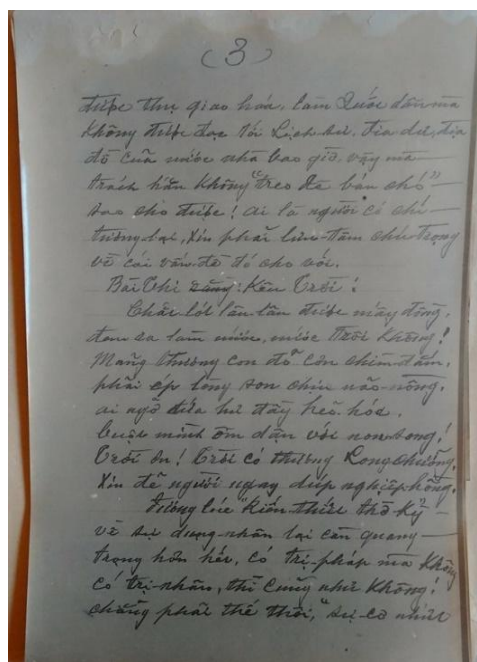 (3)
được thụ giao hóa, làm Quốc dân mà
không được đọc tới Lịch-sử, địa dư, địa
đồ của nước nhà bao giờ, vậy mà
trách hẳn không "treo dê bán chó"
sao cho được! ai là người có chí
tương lai, xin phải lưu-tâm chú trọng
về cái vấn-đề đó cho với.
Bài Thi rằng: Kêu Trời!
lần-lần được mấy đông,
đem ra làm nước, nước Trời không!
Mảng thương con đỏ còn chìm-đắm,
phải ép lòng son chịu não-nồng,
ai ngỡ đứa hư đầy
buộc mình ôm dận với non song!
Trời ơi! Trời có thương Long
Xin để người ngay dúp nghiệp hồng.
Đương lúc "kiến-thức thờ kỳ"
về sự dụng-nhân lại cần quang
trọng hơn hết, có trị-pháp mà không
có trị-nhân, thì cũng như không!
chẳng phải thế thôi, "sự-cơ nhứt